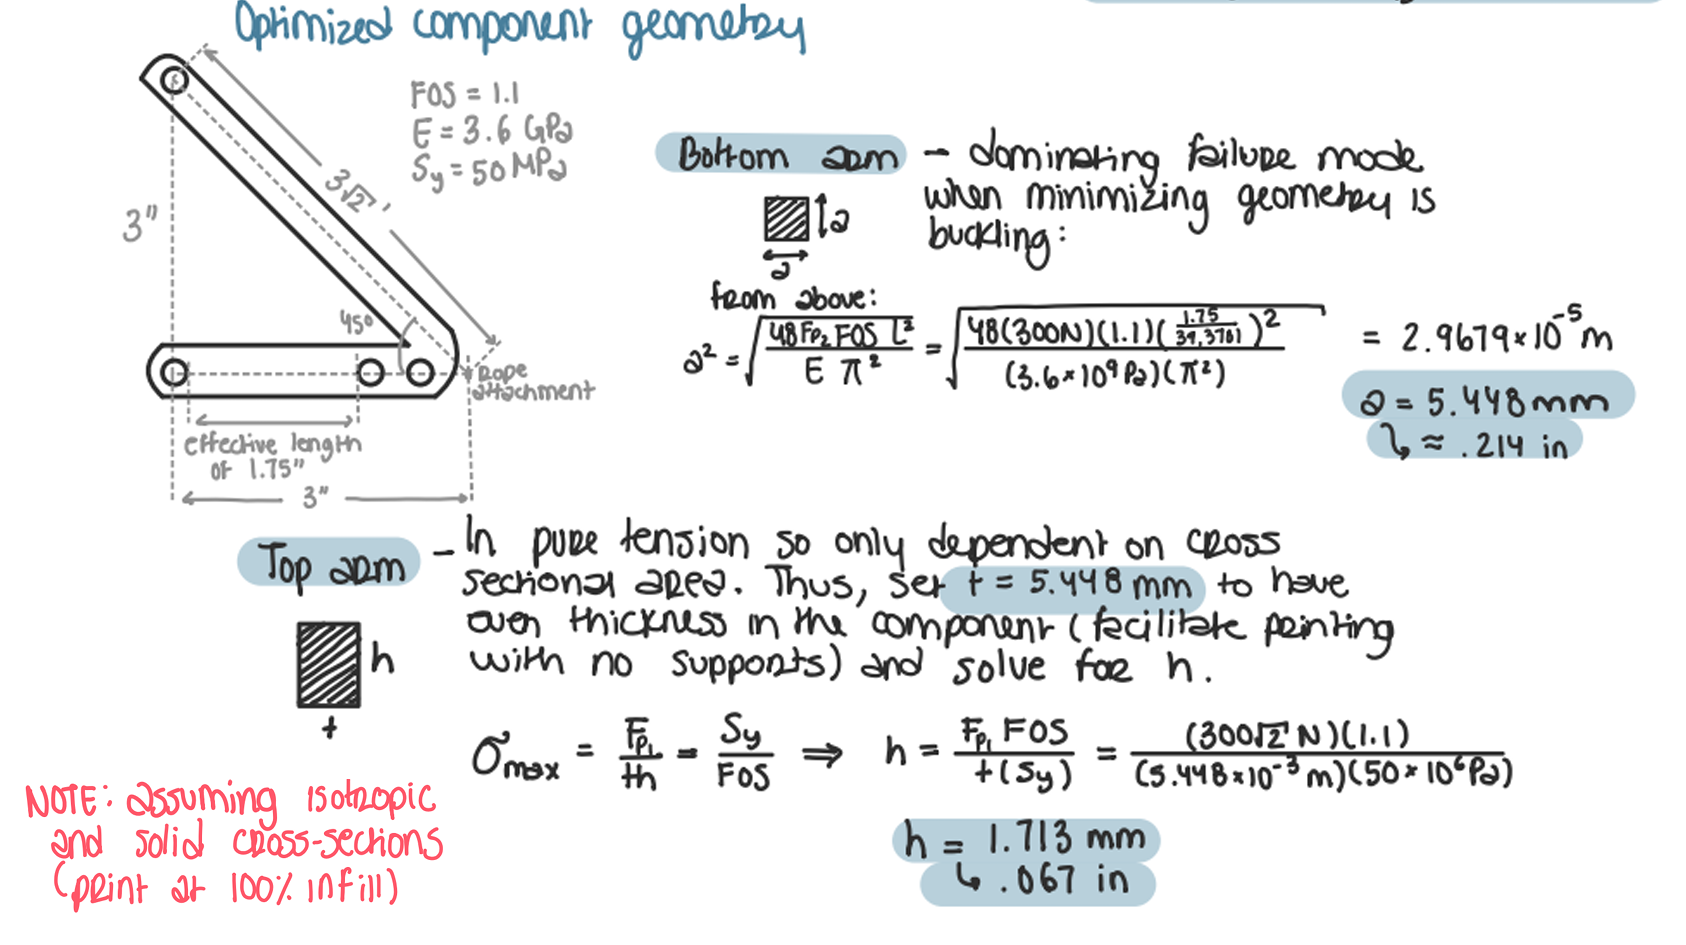 Optimized component geometry
FOS = 1.1
E = 3.6 GPa
Sy = 50 MPa
3√2'
3"
45°
Rope
attachment
effective length
of 1.75"
3"
Bottom arm – dominating failure mode
when minimizing geometry is
buckling:
a
a
from above:
a² = √(48 Fp₂ FOS L² / E π²) = √(48(300N)(1.1)(1.75/39.3701)² / (3.6×10⁹ Pa)(π²)) = 2.9679×10⁻⁵ m
a = 5.448 mm
↳ ≈ .214 in
Top arm – In pure tension so only dependent on cross
sectional area. Thus, set t = 5.448 mm to have
even thickness in the component (facilitate printing
with no supports) and solve for h.
h
t
σmax = Fp₁/th = Sy/FOS ⇒ h = Fp₁ FOS / t(Sy) = (300√2 N)(1.1) / (5.448×10⁻³ m)(50×10⁶ Pa)
h = 1.713 mm
↳ .067 in
NOTE: assuming isotropic
and solid cross-sections
(print at 100% infill)